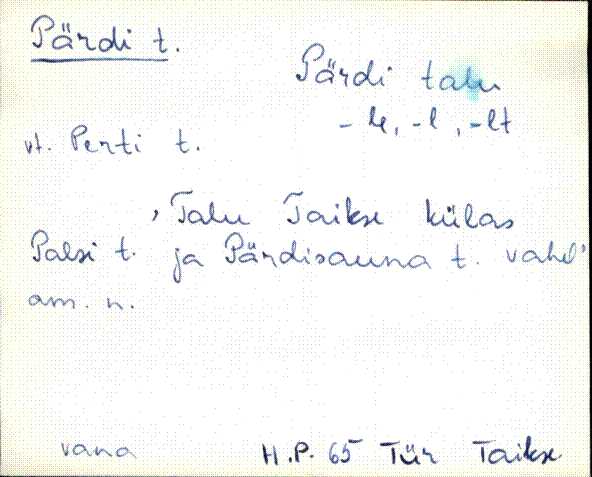 Pärdi t.
Pärdi talu
-le, -l, -lt
vt. Perti t.
, Talu Taikse külas
Palsi t. ja Pärdisauna t. vahel
am. n.
vana
H.P. 65 Tür Taikse